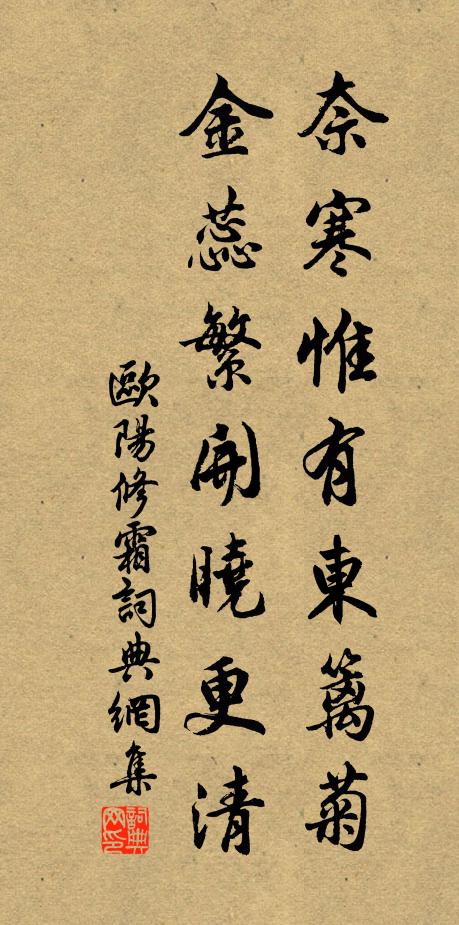 奈寒惟有東籬菊
金蕊繁開曉更清
歐陽修霜詞典網集
詞典网印